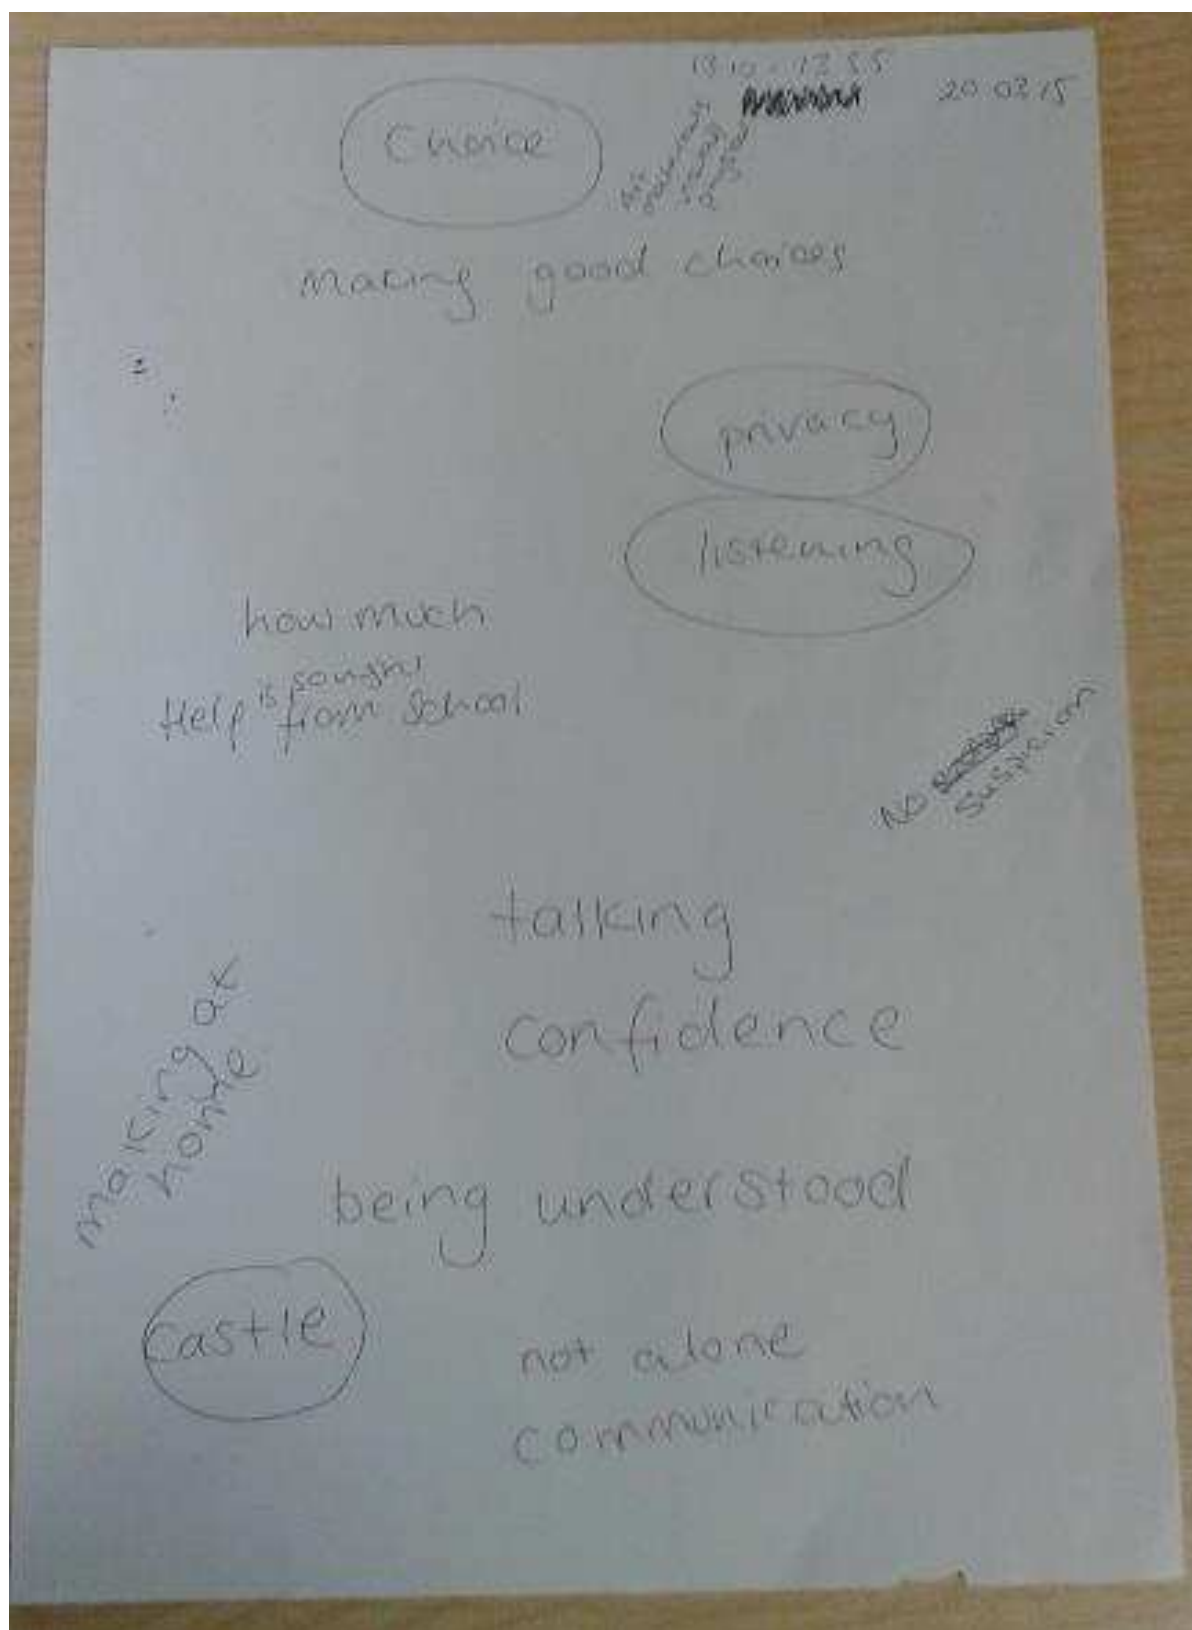 20.03.15
Choice
making good choices
privacy
listening
how much
Help is sought from School
No
suspicion
talking
confidence
making at
home
being understood
Castle
not alone
communication